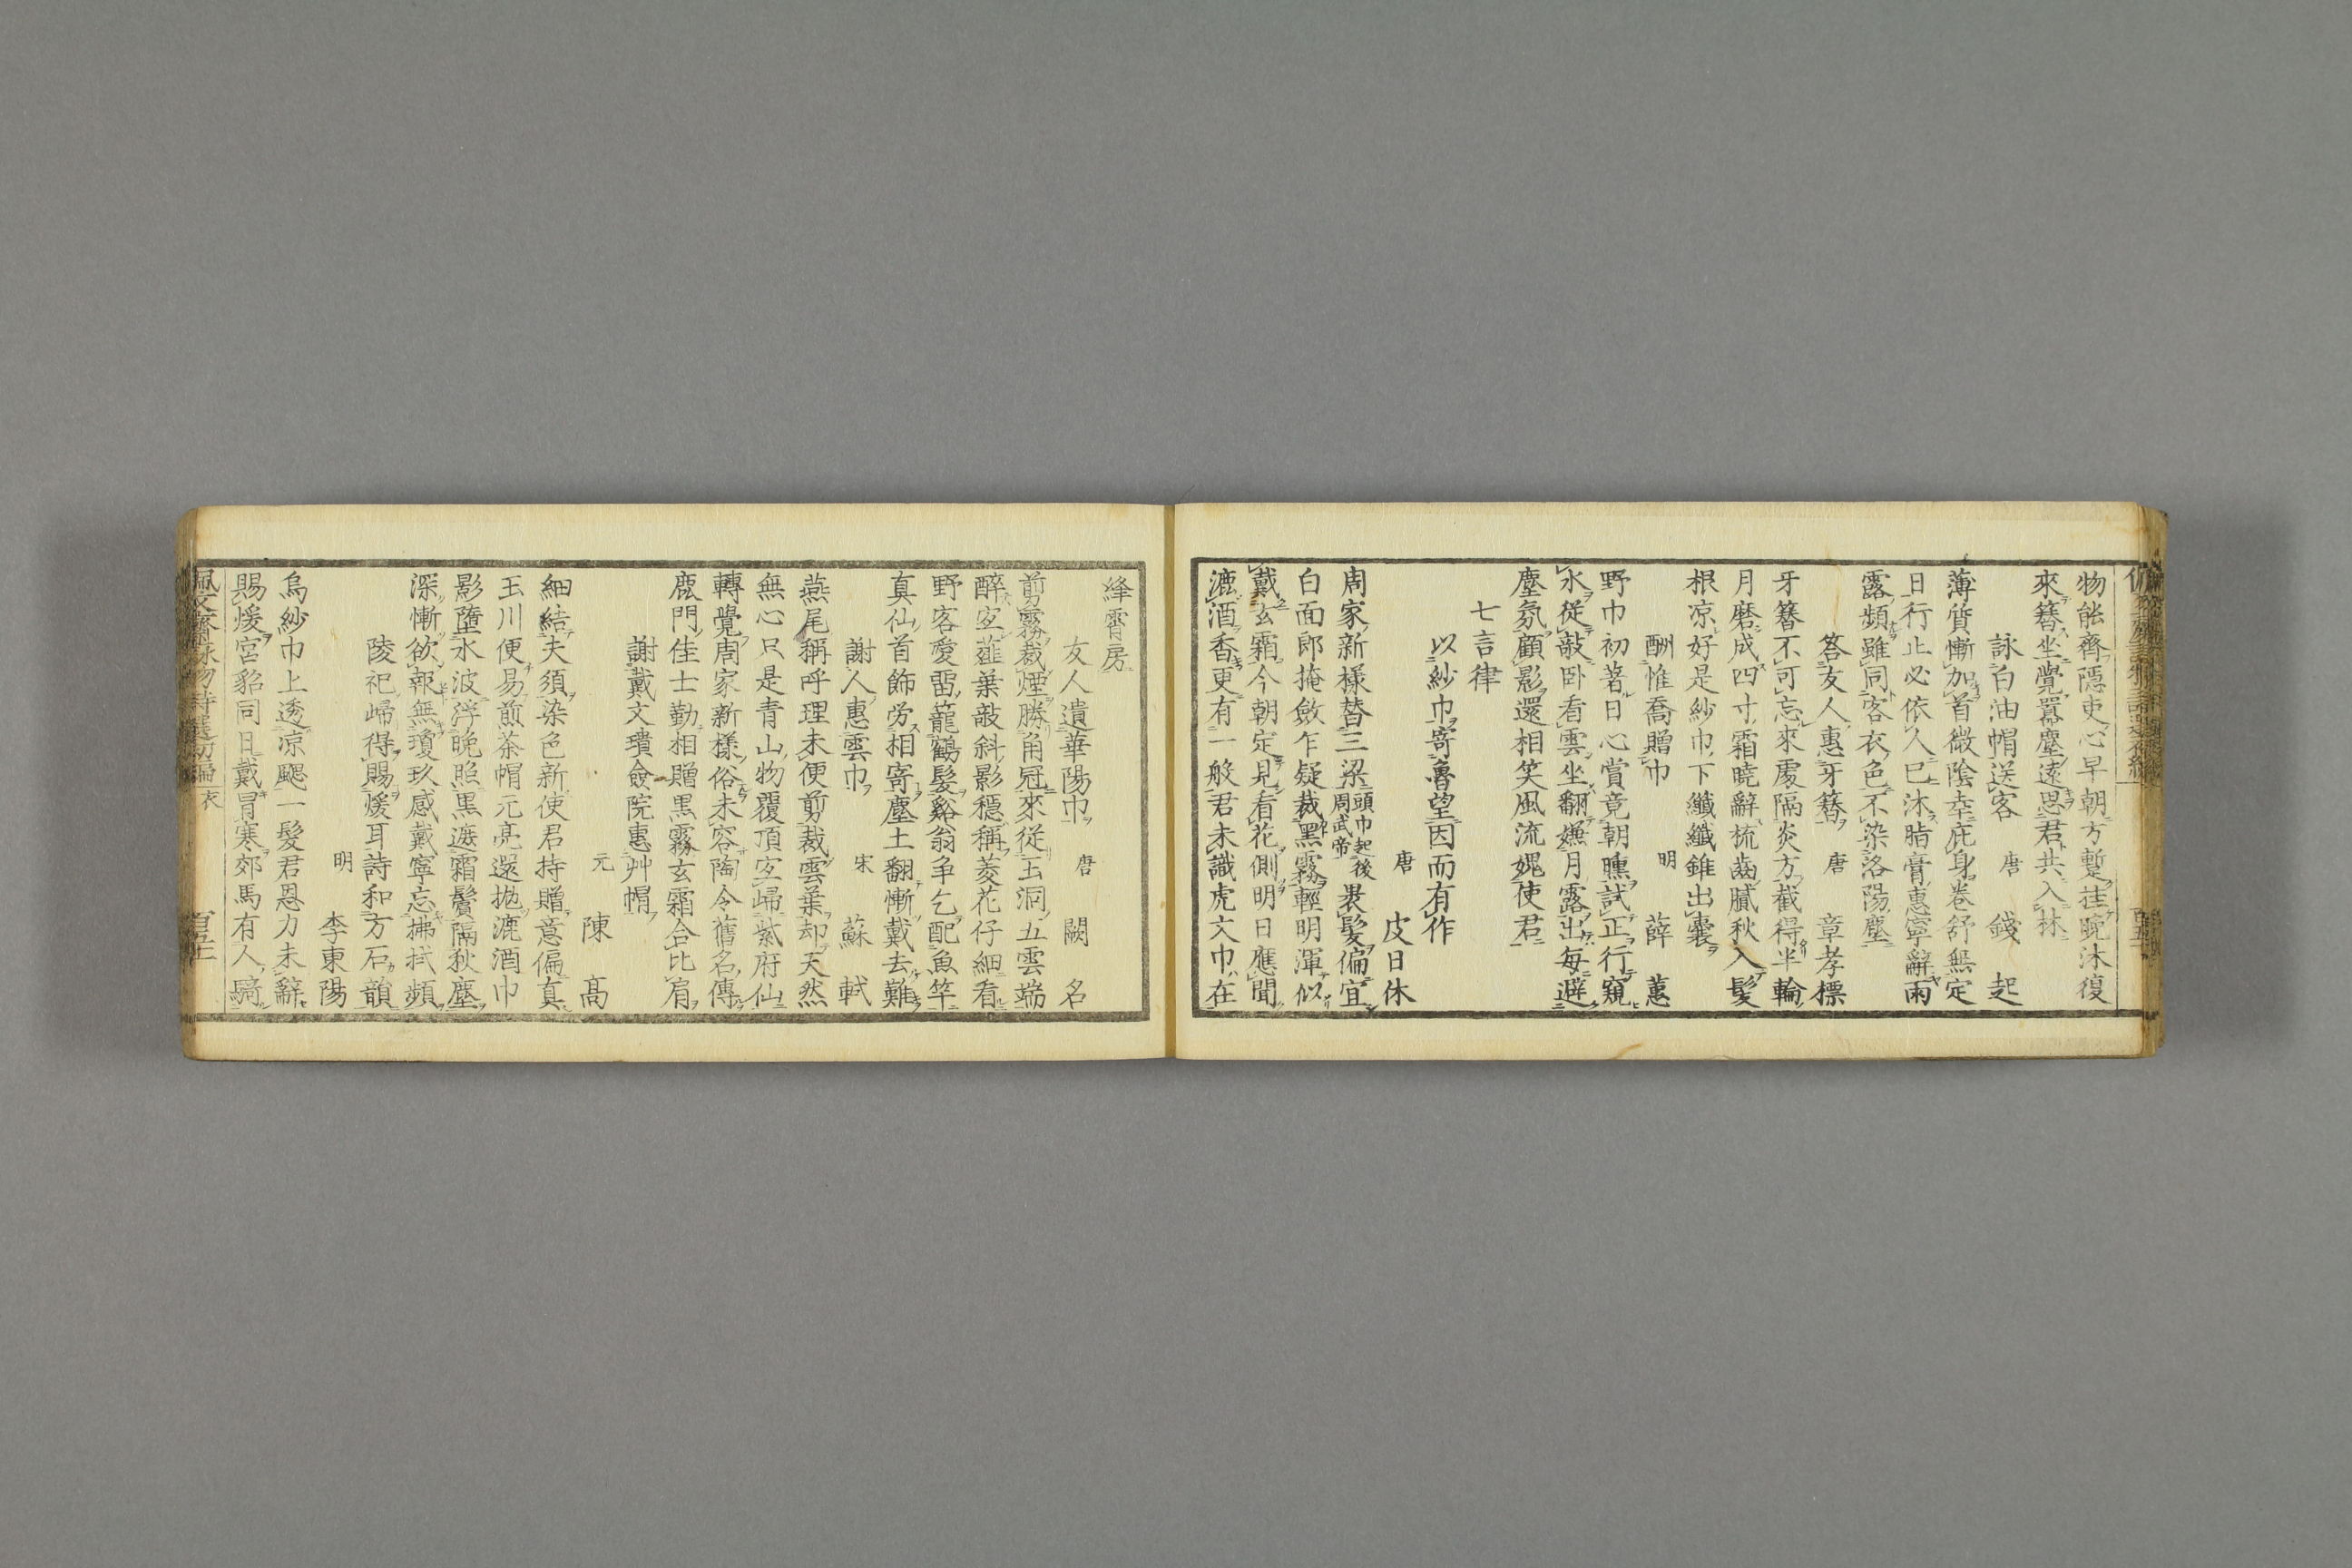 物能齊隠吏心早朝方蹔挂晩沐復
來簪坐覺囂塵遠思君共入林
詠白油帽送客 唐 錢起
薄質慚加首微陰幸庇身卷舒無定
日行止必依人已沐脂膏惠寧辭雨
露頻雖同客衣色不染洛陽塵
答友人惠牙簪 唐 章孝標
牙簪不可忘來處隔炎方截得半輪
月磨成四寸霜曉辭梳齒膩秋入髮
根凉好是紗巾下纖纖錐出囊
酬惟喬贈巾 明 薛蕙
野巾初著日心賞竟朝醺試正行窺
水從敲卧看雲坐翻嫌月露出每避
塵氛顧影還相笑風流媿使君
七言律
以紗巾寄魯望因而有作
唐 皮日休
周家新樣替三梁頭巾起後周武帝裹髮偏宜
白面郎掩斂乍疑裁黑霧輕明渾似
戴玄霜今朝定見看花側明日應聞
漉酒香更有一般君未識虎文巾在
絳霄房
友人遺華陽巾 唐 闕名
剪霧裁煙勝角冠來從玉洞五雲端
醉宜薤葉敲斜影穩稱菱花仔細看
野客愛畱籠鶴髮谿翁争乞配魚竿
真仙首飾労相寄塵土翻慚戴去難
謝人惠雲巾 宋 蘇軾
燕尾稱呼理未便剪裁雲葉却天然
無心只是青山物覆頂宜歸紫府仙
轉覺周家新樣俗未容陶令舊名傳
鹿門佳士勤相贈黒霧玄霜合比肩
謝戴文璝僉院惠艸帽
元 陳高
細結夫須染色新使君持贈意偏真
玉川便易煎茶帽元亮還拋漉酒巾
影墮水波浮晩照黒遮霜鬢隔秋塵
深慚欲報無瓊玖感戴寧忘拂拭頻
陵祀歸得賜煖耳詩和方石韻
明 李東陽
烏紗巾上透凉颸一髮君恩力未辭
賜煖宮貂同日戴冐寒郊馬有人騎
佩文齋詠物詩選初編 衣